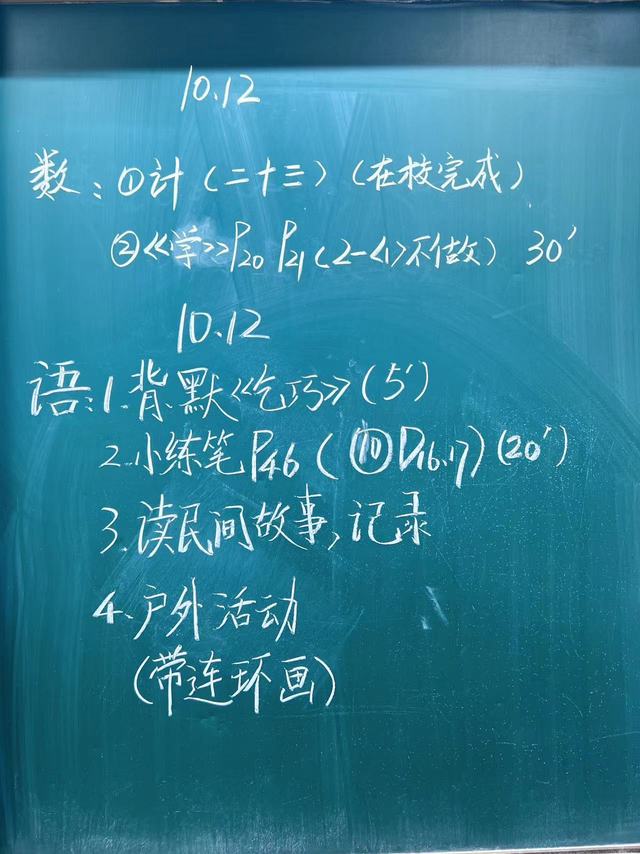 10.12
数：①计（二十三）（在校完成）
②《学》P20 P21（2-<1>不做） 30′
10.12
语：1.背.默《乞巧》（5′）
2.小练笔P46（⑩P16.17）（20′）
3.读民间故事,记录
4.户外活动
（带连环画）